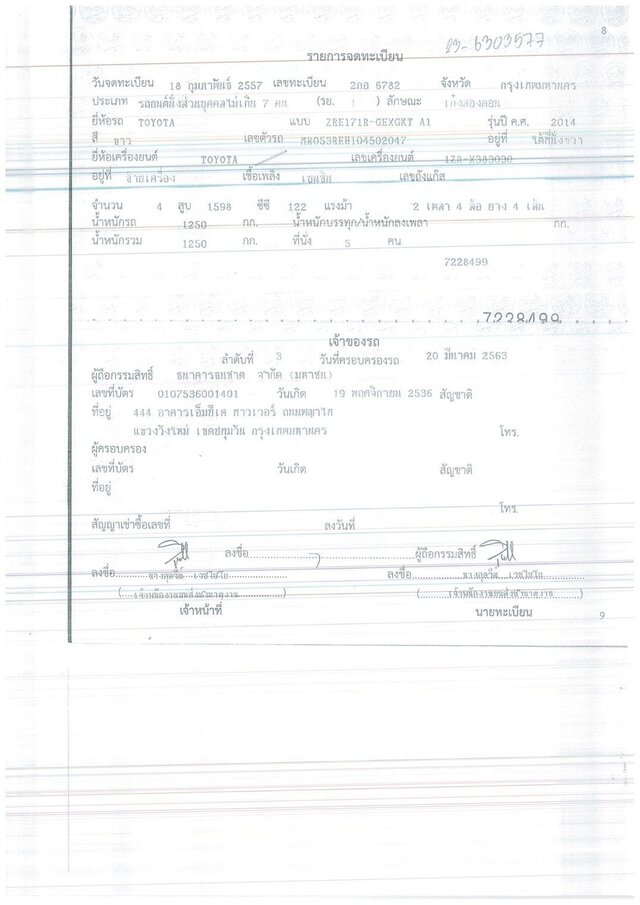 8
23-6303577
รายการจดทะเบียน
วันจดทะเบียน 18 กุมภาพันธ์ 2557 เลขทะเบียน 2กอ 6782 จังหวัด กรุงเทพมหานคร
ประเภท รถยนต์นั่งส่วนบุคคลไม่เกิน 7 คน (รย. 1 ) ลักษณะ เก๋งสองตอน
ยี่ห้อรถ TOYOTA แบบ ZRE171R-GEXGKT A1 รุ่นปี ค.ศ. 2014
สี ขาว เลขตัวรถ MR053REH104502047 อยู่ที่ ใต้ที่นั่งขวา
ยี่ห้อเครื่องยนต์ TOYOTA เลขเครื่องยนต์
อยู่ที่ ซ้ายเครื่อง เชื้อเพลิง เบนซิน เลขถังแก๊ส
จำนวน 4 สูบ 1598 ซีซี 122 แรงม้า 2 เพลา 4 ล้อ ยาง 4 เส้น
น้ำหนักรถ 1250 กก. น้ำหนักบรรทุก/น้ำหนักลงเพลา กก.
น้ำหนักรวม 1250 กก. ที่นั่ง 5 คน
7228499
7228499
เจ้าของรถ
ลำดับที่ 3 วันที่ครอบครองรถ 20 มีนาคม 2563
ผู้ถือกรรมสิทธิ์ ธนาคารธนชาต จำกัด (มหาชน)
เลขที่บัตร 0107536001401 วันเกิด 19 พฤศจิกายน 2536 สัญชาติ
ที่อยู่ 444 อาคารเอ็มบีเค ทาวเวอร์ ถนนพญาไท
แขวงวังใหม่ เขตปทุมวัน กรุงเทพมหานคร โทร.
ผู้ครอบครอง
เลขที่บัตร วันเกิด สัญชาติ
ที่อยู่
โทร.
สัญญาเช่าซื้อเลขที่ ลงวันที่
ลงชื่อ ผู้ถือกรรมสิทธิ์
ลงชื่อ ลงชื่อ
เจ้าหน้าที่ นายทะเบียน
9